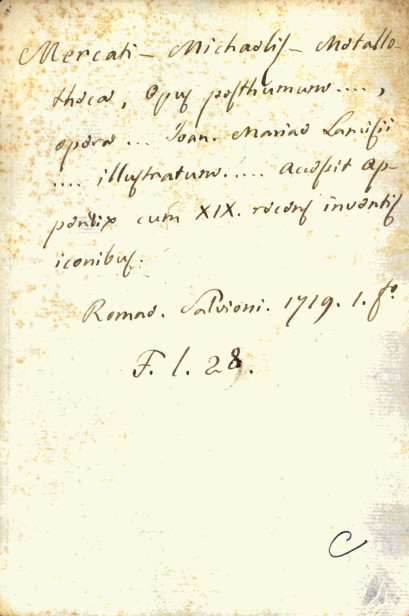 Mercati – Michaelis – Metallo-
theca, Opus posthumum....,
opera ... Joan. Mariae Lancisii
.... illustratum..... Accessit Ap-
pendix cum XIX. recens inventis
iconibus.
Romae. Salvioni. 1719. 1. fo.
F. l. 28.
C